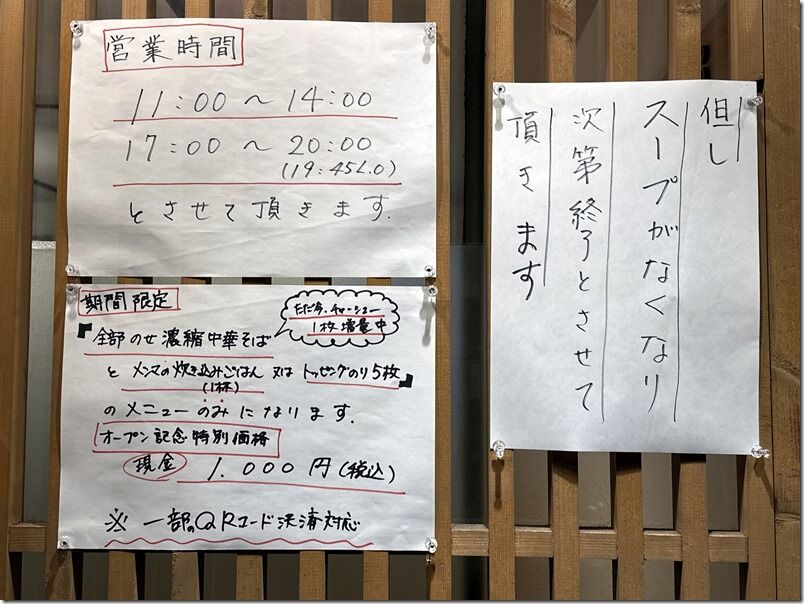 営業時間
11:00～14:00
17:00～20:00
(19:45L.O)
とさせて頂きます.
期間限定
ただ今、チャーシュー
1枚増量中
『全部のせ濃縮中華そば
と メンマの炊き込みごはん 又は トッピングのり5枚』
(1杯)
のメニューのみになります.
オープン記念特別価格
現金 1.000円(税込)
※ 一部のQRコード決済対応
但し
スープがなくなり
次第終了とさせて
頂きます